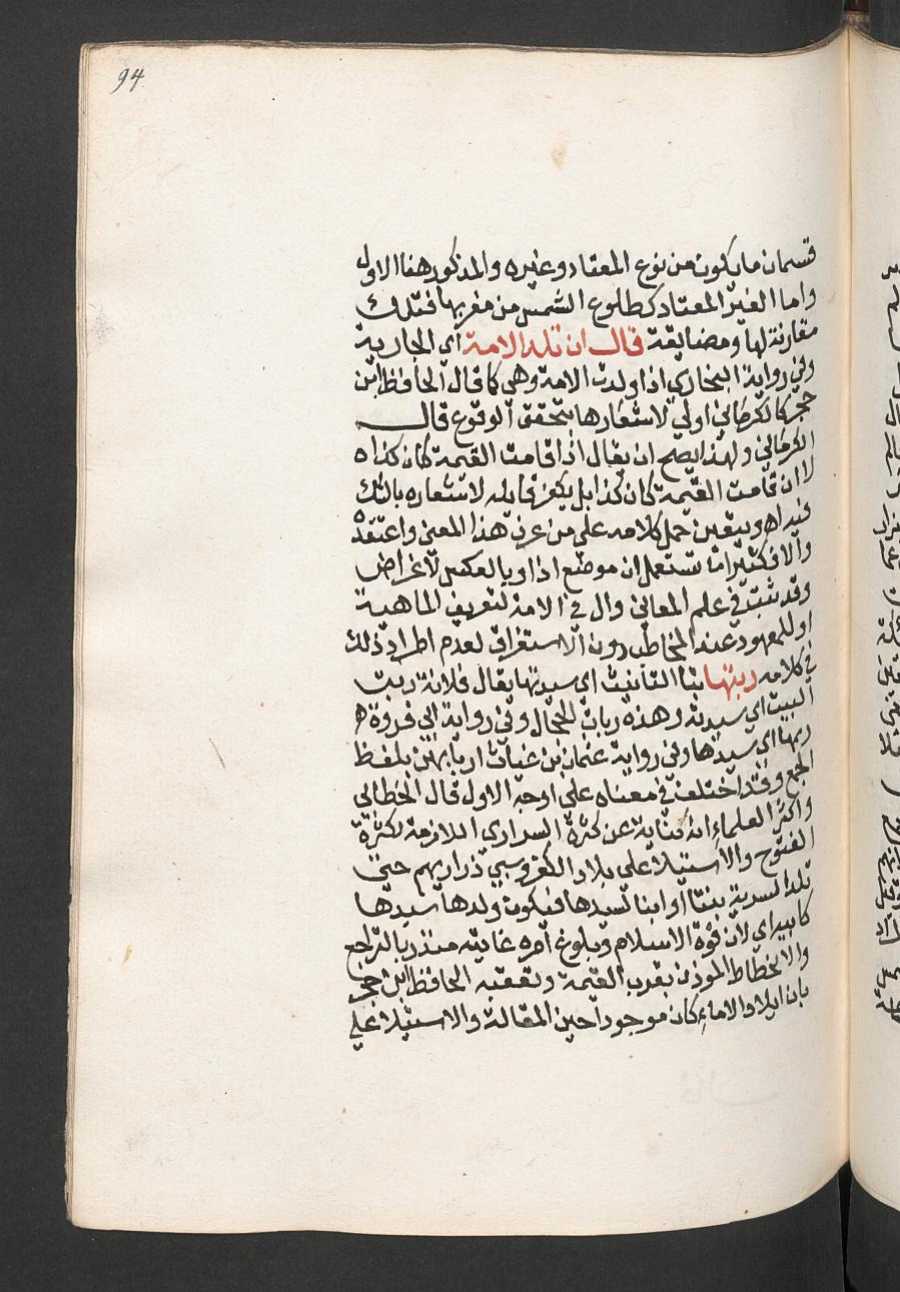 94
قسمان ما يكون من نوع المعتاد وغيره والمذكور هنا الاول
واما الغير المعتاد كطلوع الشمس من مغربها فتلك
مقارنة لها ومضايقة قال ان تلد الامة اي الجارية
وفي رواية البخاري اذا ولدت الامة وهي كما قال الحافظ ابن
حجر كالكرماني اولي لاشعارها بتحقق الوقوع قال
الكرماني ولهذا يصح ان يقال اذا قامت القيمة كان كذا ه
لا ان قامت القيمة كان كذا بل يكفر قايله لاشعاره بالشك
فيه اه ويتعين حمل كلامه علي من عرف هذا المعني واعتقده
والا فكثيرا ما تستعمل ان موضع اذا وبالعكس لاغراض
وقد ثبت في علم المعاني وال في الامة لتعريف الماهية
او للمعهود عند المخاطب دون الاستغراق لعدم اطراد ذلك
في كلامه ربتها بتا التانيث اي سيدتها يقال فلانة ربت
البيت اي سيدته وهذه ربات الحجال وفي رواية ابي فروة ه
ربها اي سيدها وفي رواية عثمان بن غياث اربابهن بلفظ
الجمع وقد اختلف في معناه علي اوجه الاول قال الخطابي
واكثر العلماء انه كناية عن كثرة السراري اللازمة لكثرة
الفتوح والاستيلا علي بلاد الكفر وسبي ذراريهم حتي
تلد السرية بنتا او ابنا لسيدها فيكون ولدها سيدها
كابيه اي لان قوة الاسلام وبلوغ امره غايته منذر بالتراجع
والانحطاط الموذن بقرب القيمة وتعقبه الحافظ ابن حجر
بان ايلاد الاماء كان موجودا حين المقالة والاستيلا علي